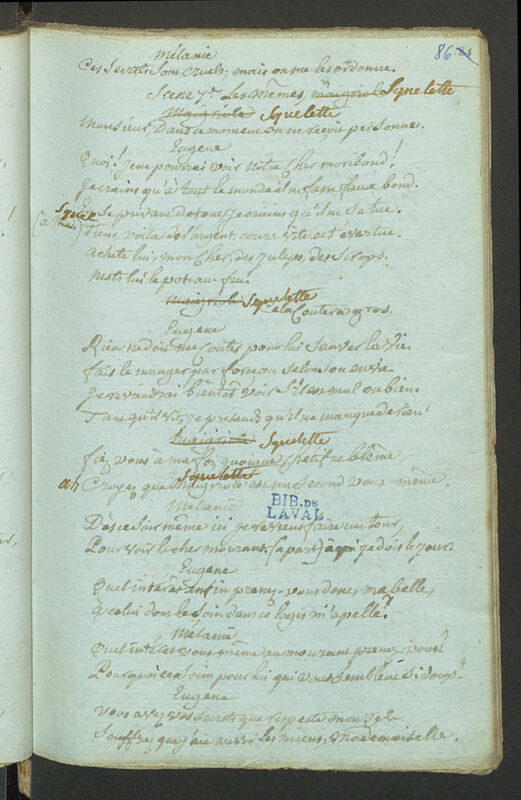 86
Mélanie
Ces Secrets Sont cruels, mais on me les ordonne.
Scene 7e Les Mêmes, Maigriole Squelette
Maigriole Squelette
Monsieur, Dans ce moment on ne reçoit personne.
Eugene
Quoi! je ne pourrai voir Notre Cher moribond!
Je crains qu'à tout le monde il ne fasse faux bond.
Et Se privant de tout, je crains qu'il ne Se tue.
(à Squel
Tiens voila de l'argent, coure
achete lui, mon Cher, des juleps, des Sirops.
Mets lui le pot au feu.
Maigriole Squelette
Eugene
Rien ne doit me Couter pour lui Sauver la Vie
fais le manger par force ou Selon Son envie
Je reviendrai bientôt voir S'il est mal ou bien.
Tant qu'il vit, je prétends qu'il ne manque de rien!
Maigriole Squelette
fiez vous à ma foi, quoique Chetif et blême,
ah Croyez que Maigriole Squelette est un Second vous-même.
Mélanie
Dès ce Soir même ici je reviens faire un tour,
Pour voir le cher mourant. (apart) à qui je dois le jour.
BIB. DE
LAVAL
Eugene
Quel intérêt enfin prenez-vous donc, ma belle,
à celui dont le Soin dans ce logis m'apelle?
Mélanie
Quel intérêt vous même au mourant prenez vous?
Pourquoi ce Soin pour lui qui vous Semble Si doux?
Eugene
Vous avez vos Secrets que respecte mon zele
Souffrez que j'aie aussi les miens, Mademoiselle.